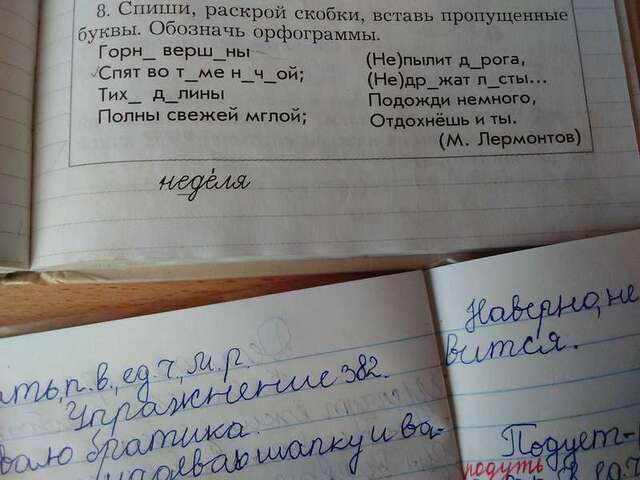 8. Спиши, раскрой скобки, вставь пропущенные
буквы. Обозначь орфограммы.
Горн_ верш_ны
Спят во т_ме н_ч_ой;
Тих_ д_лины
Полны свежей мглой;
(Не)пылит д_рога,
(Не)др_жат л_сты...
Подожди немного,
Отдохнёшь и ты.
(М. Лермонтов)
неделя
ать, п.в., ед.ч, м.р.
Упражнение 382.
валю братика.
надеваю шапку и ва-
Наверно, не
вится.
Подует-
подуть